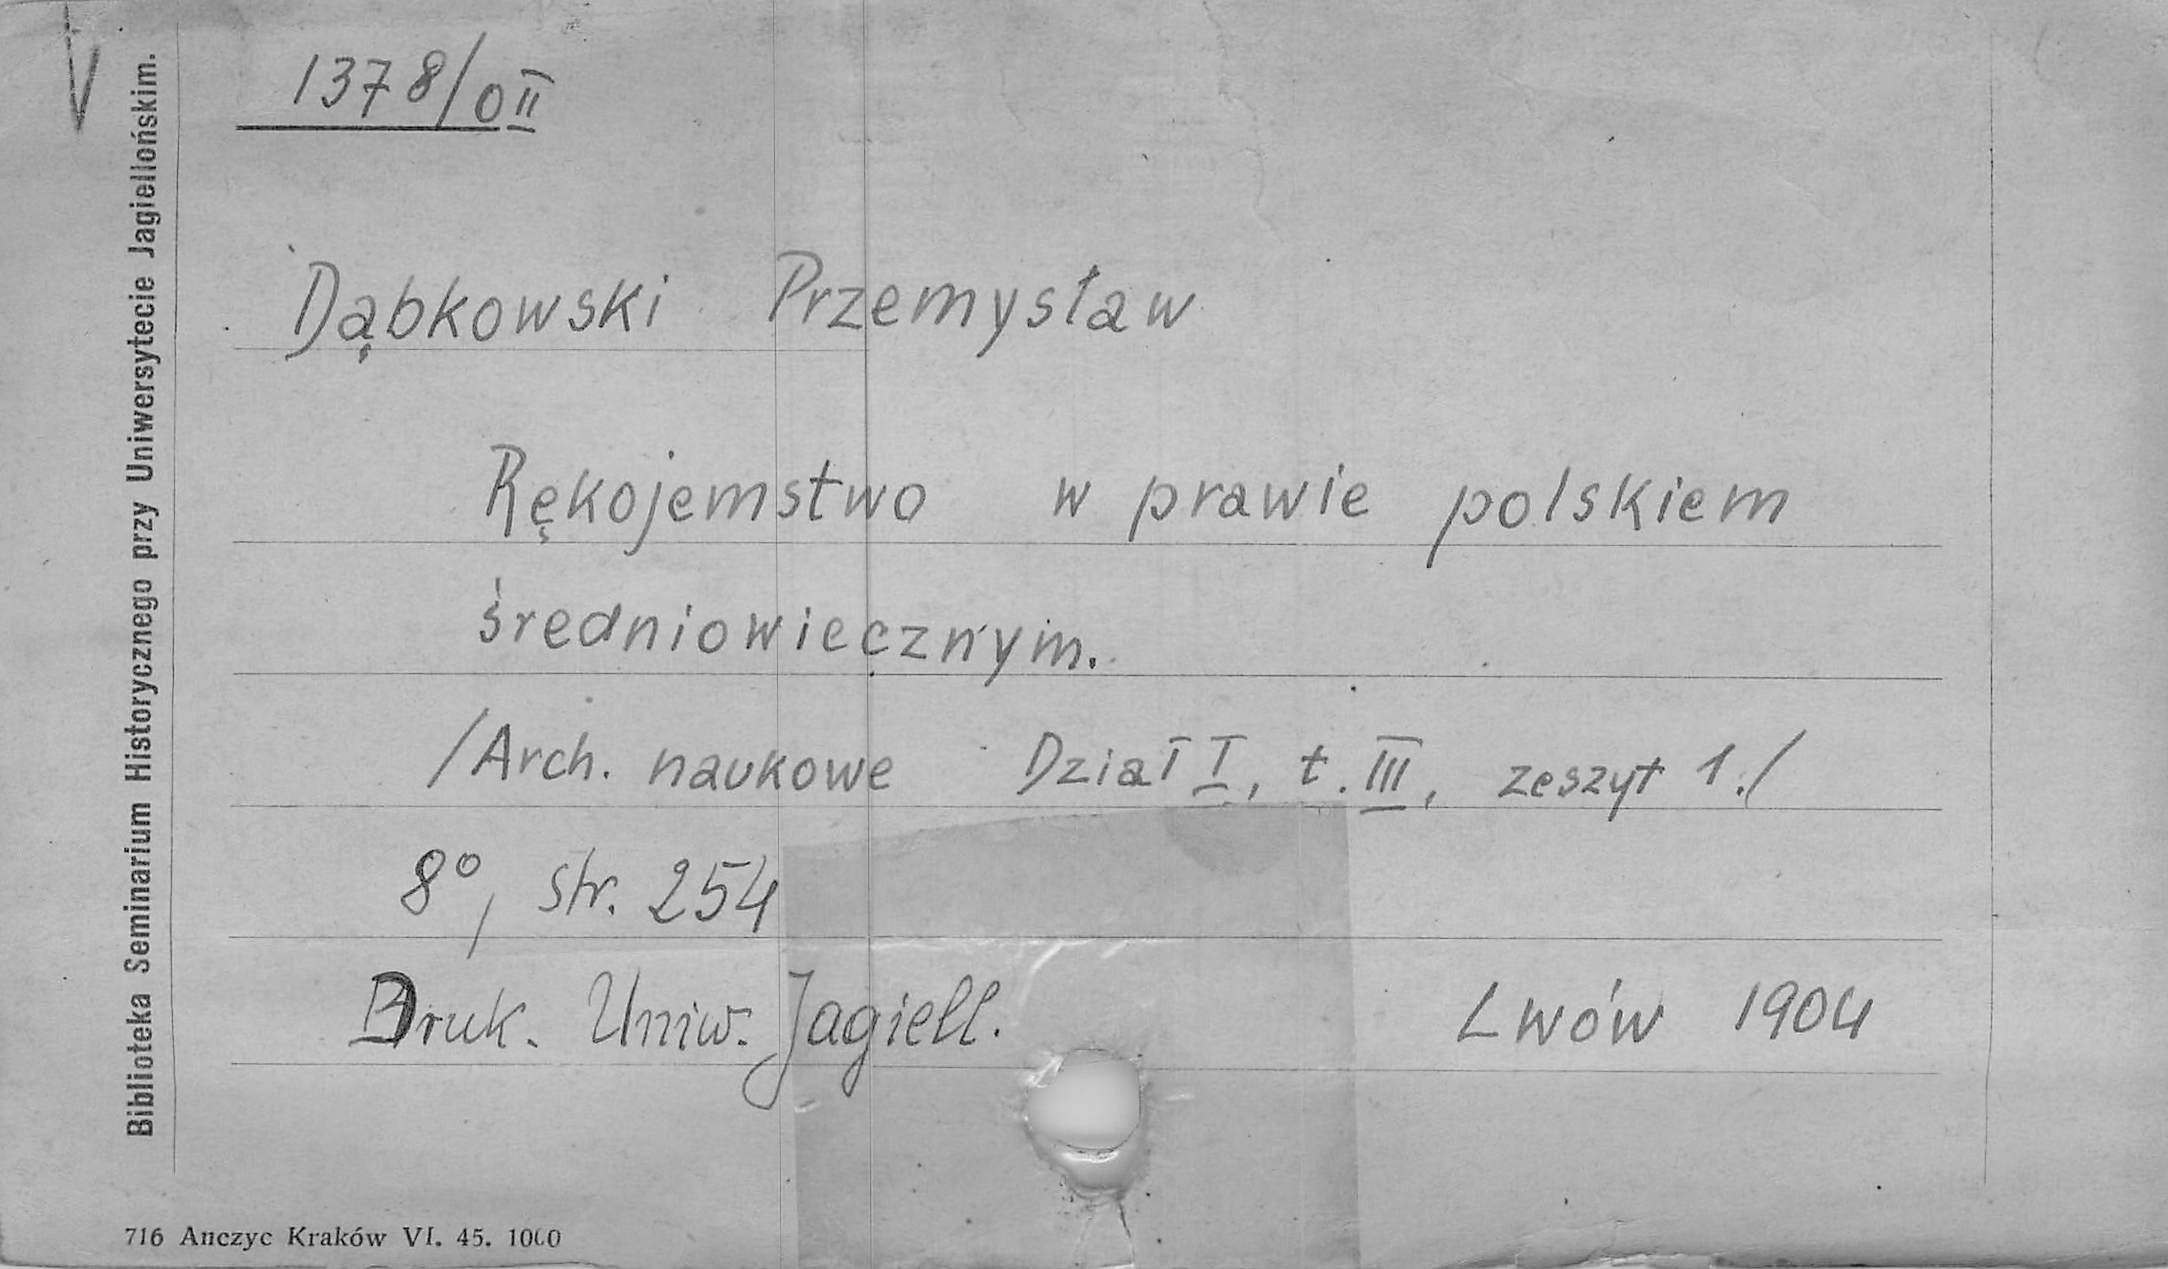 1378/OII
Dąbkowski Przemysław
Rękojemstwo w prawie polskiem
średniowiecznym.
/Arch. naukowe Dział I, t. III, zeszyt 1./
8°, str. 254
Druk. Uniw. Jagiell. Lwów 1904
Biblioteka Seminarium Historycznego przy Uniwersytecie Jagiellońskim.
716 Anczyc Kraków VI. 45. 1000